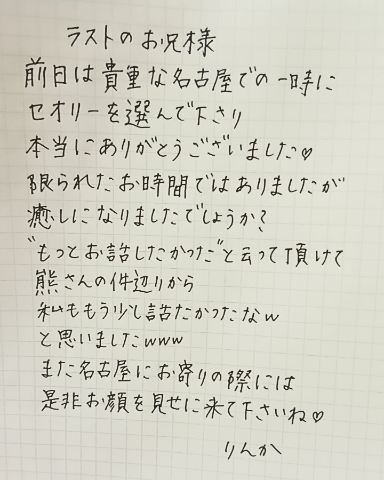 ラストのお兄様
前日は貴重な名古屋での一時に
セオリーを選んで下さり
本当にありがとうございました♡
限られたお時間ではありましたが
癒しになりましたでしょうか?
"もっとお話したかった"と云って頂けて
熊さんの件辺りから
私ももう少し話たかったなw
と思いましたwww
また名古屋にお寄りの際には
是非お顔を見せに来て下さいね♡
りんか